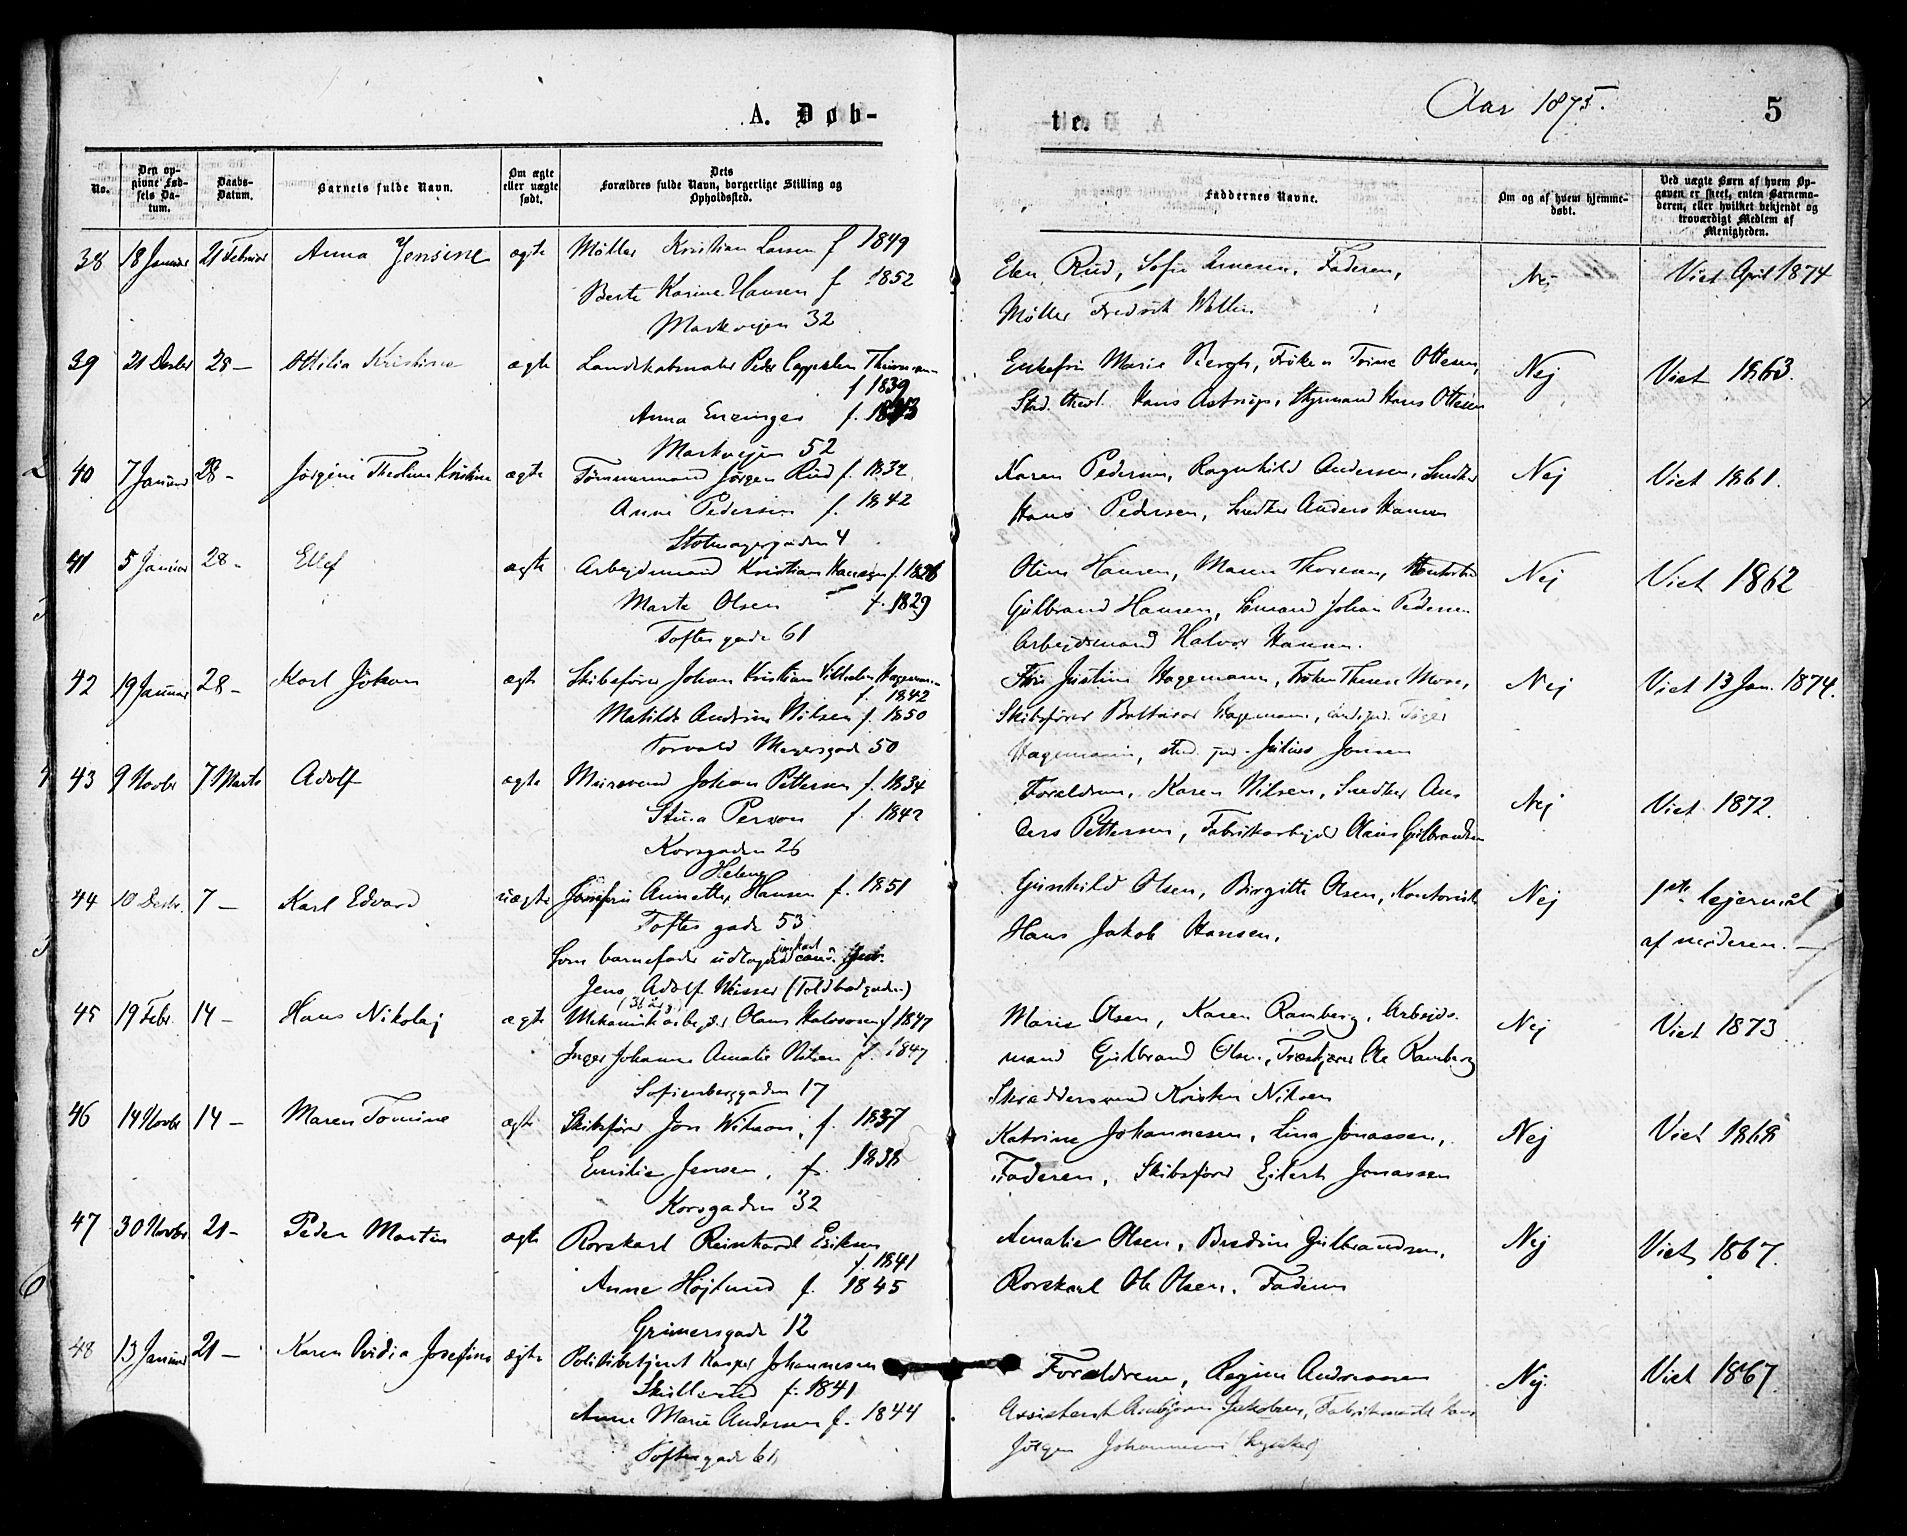 A. Døb-
te.
Aar 1875.
5
No.
Den op-
givne Fød-
sels Da-
tum.
Daabs-
Datum.
Barnets fulde Navn.
Om ægte
eller uægte
født.
Dets
Forældres fulde Navn, borgerlige Stilling og
Opholdssted.
Faddernes Navne.
Om og af hvem hjemme-
døbt.
Ved uægte Børn af hvem Op-
gaven er skeet, enten Barnemo-
deren, eller hvilket bekjendt og
troværdigt Medlem af
Menigheden.
38 18 Januar 21 Februar Anna Jensine ægte Møller Kristian Larsen f 1849
Berte Karine Hansen f 1852
Markvejen 32
Elen Rud, Sofie Arnesen, Faderen,
Møller Fredrik Wallin
Nej
Viet April 1874
39 21 Decbr 28 — Ottilia Kristine ægte Landskabsmaler Peder Cappelen Thurmann
f 1839
Anna Enzinger f. 1843
Markvejen 52
Enkefru Marie Bergh, Frøken Trine Ottesen,
Stud. theol. Hans Astrup, Styrmand Hans Ottesen
Nej
Viet 1863.
40 7 Januar 28 - Jørgine Theoline Kristine ægte Tømmermand Jørgen Rud f. 1832
Anne Pedersen f. 1842
Stolmagergaden 4
Karen Pedersen, Ragnhild Andersen, Snedker
Hans Pedersen, Snedker Anders Hansen
Nej
Viet 1861.
41 5 Januar 28 - Ellef ægte Arbejdsmand Kristian Hansen f. 1826
Marte Olsen f. 1829
Toftes gade 61
Oline Hansen, Maren Thoresen,
Gulbrand Hansen, Sømand Johan Pedersen
Arbejdsmand Halvor Hansen.
Nej
Viet 1862
42 19 Januar 28 - Karl Johan ægte Skibsfører Johan Kristian Vilhelm Hagemann
f. 1842
Matilde Andrine Nilsen f. 1850
Torvald Meyersgade 50
Fru Justine Hagemann, Frøken Therese Mose,
Skibsfører Baltasar Hagemann, cand. jur.
Hagemann, stud. jur. Julius Jensen
Nej
Viet 13 Jan. 1874.
43 9 Novbr 7 Marts Adolf ægte Murersvend Johan Pettersen f. 1834
Stina Person f. 1842
Korsgaden 26
Forældrene, Karen Nilsen, Snedker An-
ders Pettersen, Fabrikarbejder Olaus Gulbrandsen
Nej
Viet 1872.
44 10 Decbr. 7 — Karl Edvard uægte Jomfru Annette Helene Hansen f. 1851
Toftes gade 53
Som barnefader udlagdes cand.
Jens Adolf (Toldbodgaden)
Gunhild Olsen, Birgitte Olsen, Kontorist
Hans Jakob Hansen.
Nej
1ste lejermål
af moderen. —
45 19 Febr. 14 — Hans Nikolaj ægte Mekanisk arbejder Olaus Halvorsen f 1847
Inger Johanne Amalie Nilsen f. 1847
Sofienberggaden 17
Marie Olsen, Karen Ramberg, Arbejds-
mand Gulbrand Olsen, Træskjærer Ole Ramberg
Skræddersvend Kristen Nilsen
Nej
Viet 1873
46 14 Novbr 14 — Maren Tomine ægte Skibsfører Jon Wilson, f. 1837
Emilie Jensen, f. 1838
Korsgaden 32
Katrine Johannesen, Lina Jonassen,
Faderen, Skibsfører Ejlert Jonassen
Nej
Viet 1868
47 30 Novbr 21 - Peder Martin ægte Rorskarl Reinhardt Eriksen
f. 1841
Anne Højlund f. 1845
Grünersgade 12
Amalie Olsen, Bredine Gulbrandsen,
Rorskarl Ole Olsen, Faderen
Nej
Viet 1867.
48 13 Januar 21 — Karen Ovidia Josefine ægte Politibetjent Kasper Johannesen
Skullerud f. 1841
Anne Marie Andersen f. 1844
Toftesgade 61
Forældrene, Regine Andreasen
Assistent Jakobsen,
Jørgen Johannesen
Nej.
Viet 1867.